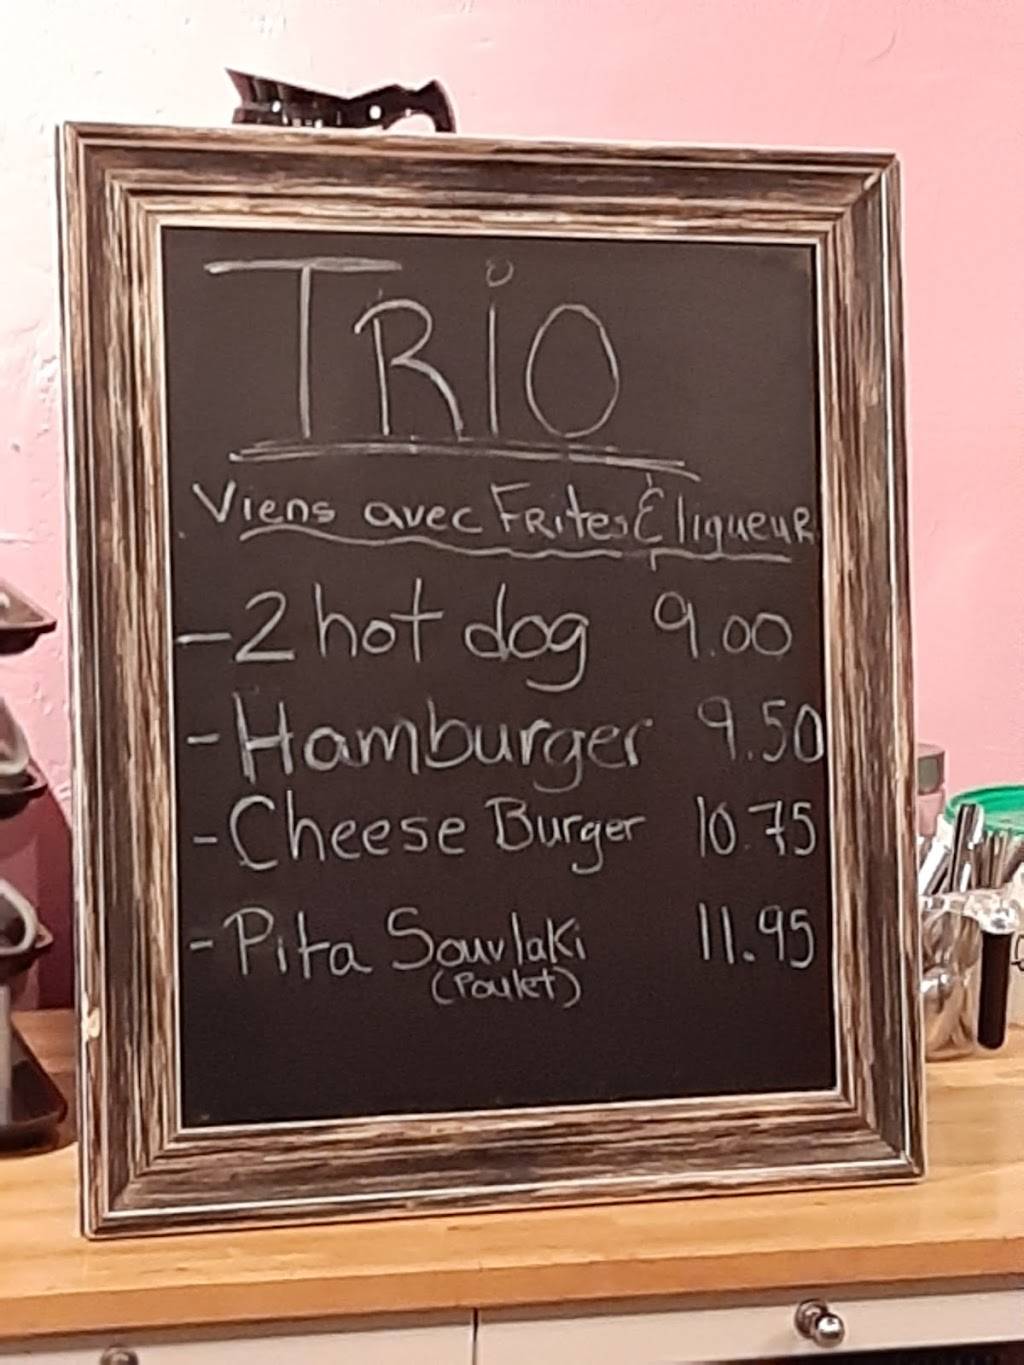 TRiO
Viens avec Frites & liqueur
- 2 hot dog 9.00
- Hamburger 9.50
- Cheese Burger 10.75
- Pita Souvlaki 11.95
(Poulet)